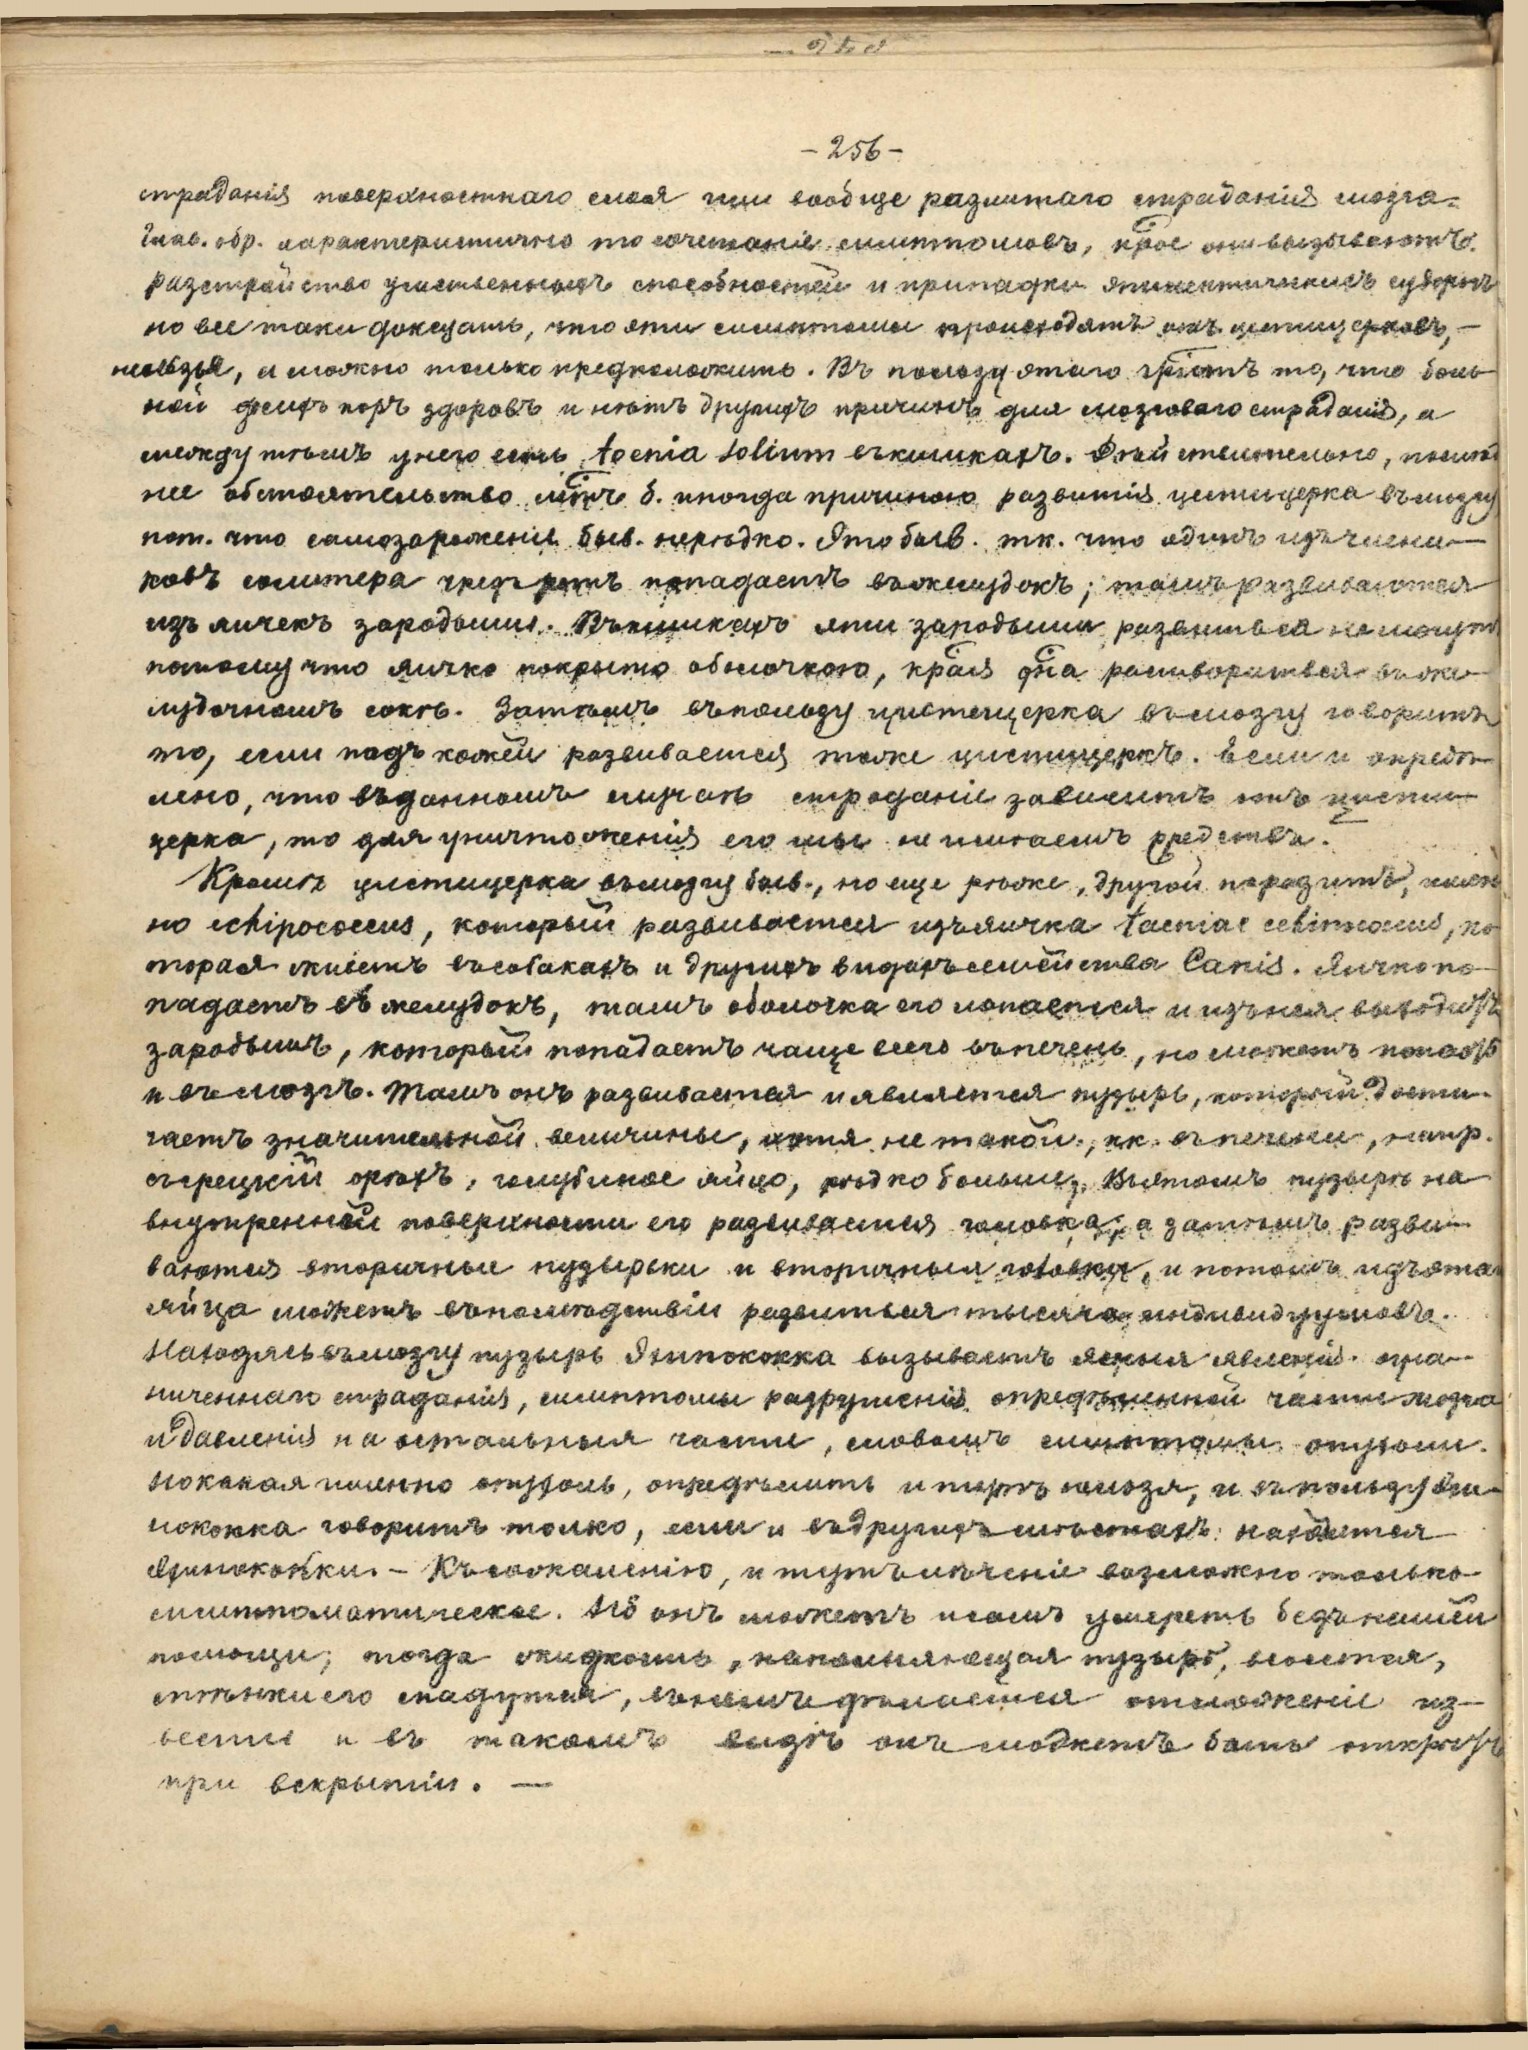 -256-
страданія поверхностнаго слоя или вообще разлитаго страданія мозга.
Глав. обр. характеристично то сочетаніе симптомовъ, крое они вызываютъ.
разстройство умственныхъ способностей и припадки эпилептическихъ судорогъ
но все таки доказать, что эти симптомы происходятъ отъ цистицерковъ,-
нельзя, а можно только предположить. Въ пользу этаго гритъ то, что боль-
ной до сихъ поръ здоровъ и нѣтъ другихъ причинъ для мозговаго страданія, а
между тѣмъ у него есть taenia solium въ кишкахъ. Дѣйствительно, послѣд
нее обстоятельство мтъ б. иногда причиною развитія цистицерка въ мозгу
пот. что самозараженіе быв. нерѣдко. Это быв. тк. что одинъ изъ члени-
ковъ солитера чрезъ ротъ попадаетъ въ желудокъ; тамъ развиваются
изъ яичекъ зародыши. Въ кишкахъ эти зародыши развиться не могутъ
потому что яичко покрыто оболочкою, края дна растворяться въ же-
лудочномъ сокѣ. Затѣмъ въ пользу цистецерка въ мозгу говоритъ
то, если подъ кожей развивается тоже цистицеркъ. Если и опредѣ-
лено, что въ данномъ случаѣ страданіе зависитъ отъ цисти-
церка, то для уничтоженія его мы не имѣемъ средства.
Кромѣ цистицерка въ мозгу быв., но еще рѣже, другой паразитъ, имен
но echinococcus, который развивается изъ яичка taeniae echinococcus, ко
торая живетъ въ собакахъ и другихъ видахъ семейства Canis. Яичко по-
падаетъ въ желудокъ, тамъ оболочка его лопается и изъ нея выходитъ
зародышъ, который попадаетъ чаще всего въ печень, но можетъ попасть
и въ мозгъ. Тамъ онъ развивается и является пузырь, который дости-
гаетъ значительной величины, хотя не такой, кк. въ печени, напр.
съ грецкій орѣхъ, голубиное яйцо, рѣдко больше. Въ этомъ пузырѣ на
внутренней поверхности его развивается головка; а затѣмъ разви-
ваются вторичные пузырьки и вторичныя головки, и потомъ изъ этаго
яйца можетъ впослѣдствіи развиться тысяча индивидуумовъ.
Находясь въ мозгу пузырь Эхинококка вызываетъ ясныя явленія огра-
ниченнаго страданія, симптомы разрушенія опредѣленной части мозга
и давленія на остальныя части, словомъ симптомы опухоли.
но какая именно опухоль, опредѣлить и тутъ нельзя, и въ пользу эхи-
нококка говоритъ только, если и въ другихъ мѣстахъ находятся
Эхинококки.- Къ сожаленію, и тутъ лѣченіе возможно только
симптоматическое. Но онъ можетъ и самъ умереть безъ нашей
помощи; тогда жидкость, наполняющая пузырь, всосется,
стѣнки его спадутся, въ немъ дѣлается отложеніе из-
вести и въ такомъ видѣ онъ можетъ быть открытъ
при вскрытіи. —